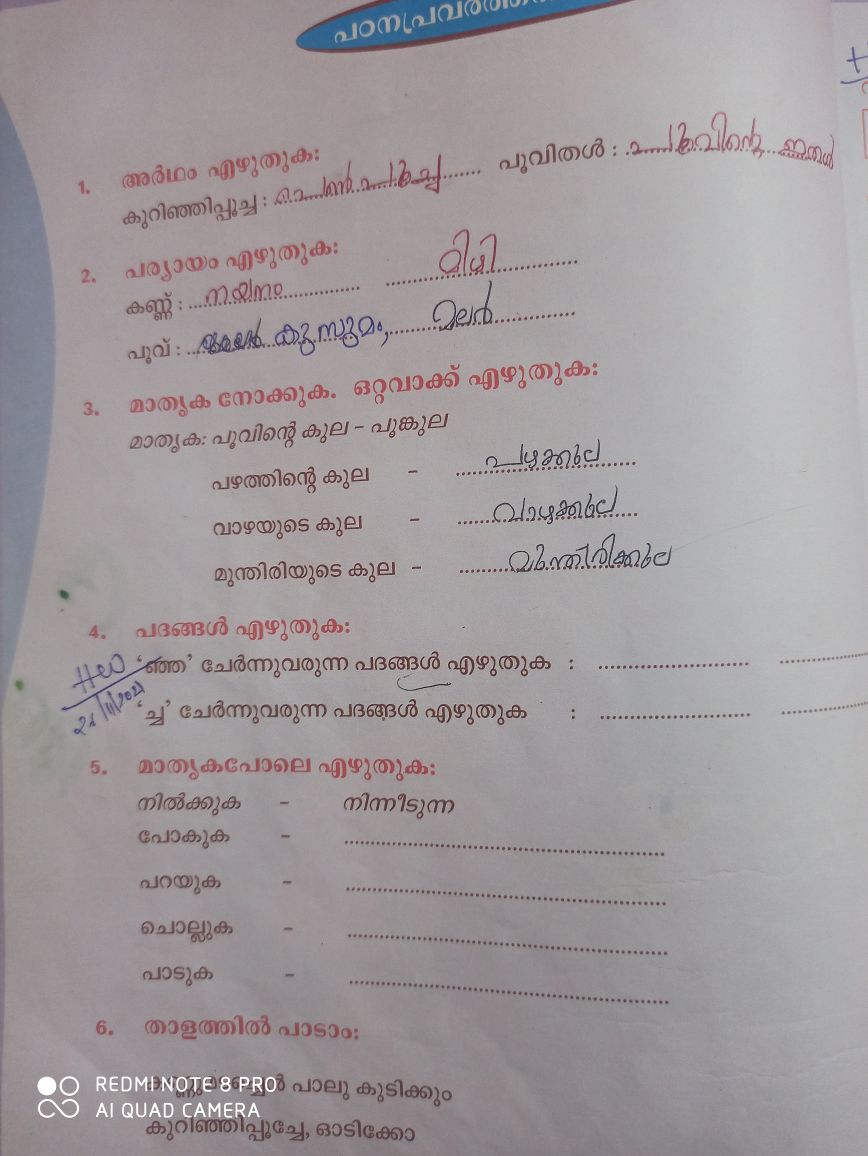 പഠനപ്രവർത്തന
1. അർഥം എഴുതുക:
കുറിഞ്ഞിപ്പൂച്ച : പെൺപൂച്ച പൂവിതൾ : പൂവിന്റെ ഇതൾ
2. പര്യായം എഴുതുക:
കണ്ണ് : നയനം മിഴി
പൂവ് : കുസുമം, മലർ
3. മാതൃക നോക്കുക. ഒറ്റവാക്ക് എഴുതുക:
മാതൃക: പൂവിന്റെ കുല – പൂങ്കുല
പഴത്തിന്റെ കുല - പഴക്കുല
വാഴയുടെ കുല - വാഴക്കുല
മുന്തിരിയുടെ കുല - മുന്തിരിക്കുല
4. പദങ്ങൾ എഴുതുക:
'ഞ്ഞ' ചേർന്നുവരുന്ന പദങ്ങൾ എഴുതുക :
'ച്ച' ചേർന്നുവരുന്ന പദങ്ങൾ എഴുതുക :
5. മാതൃകപോലെ എഴുതുക:
നിൽക്കുക - നിന്നീടുന്ന
പോകുക -
പറയുക -
ചൊല്ലുക -
പാടുക -
6. താളത്തിൽ പാടാം:
പാലു കുടിക്കും
കുറിഞ്ഞിപ്പൂച്ചേ, ഓടിക്കോ
REDMI NOTE 8 PRO
AI QUAD CAMERA